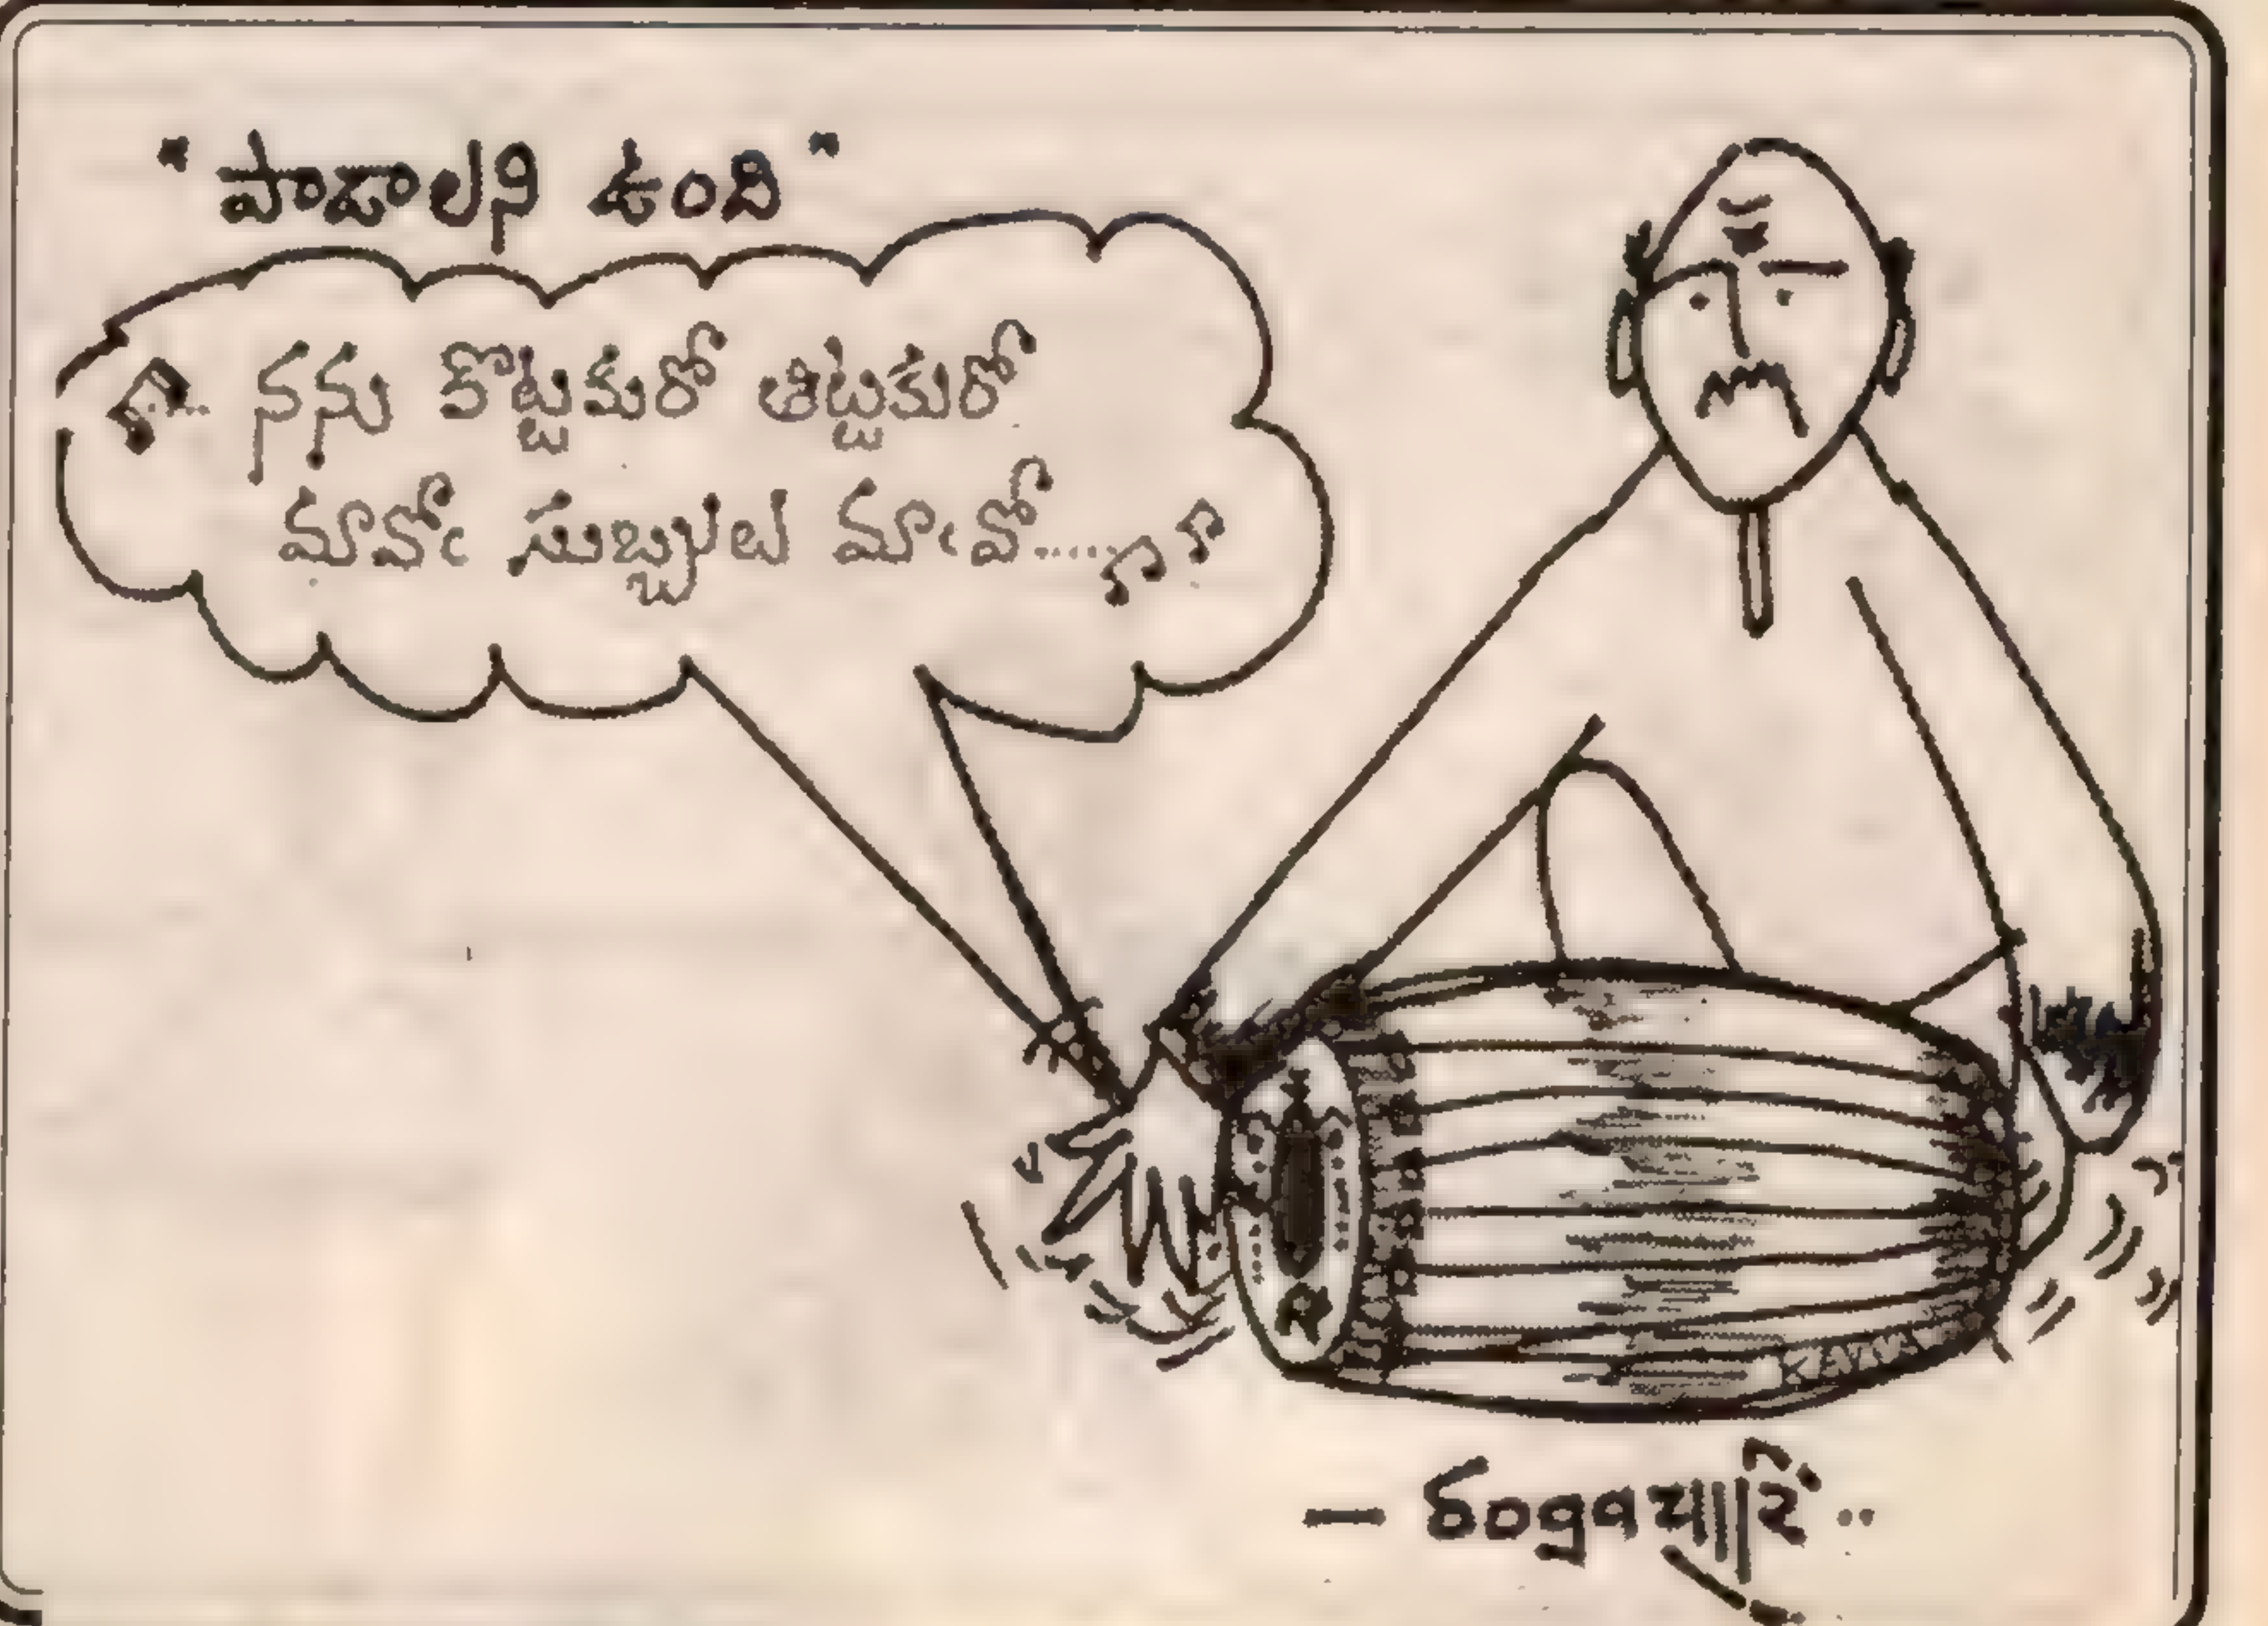 "పాడాలని ఉంది"
నను కొట్టకురో తిట్టకురో
మావోఁ సుబ్బులు మాఁవో.....
R